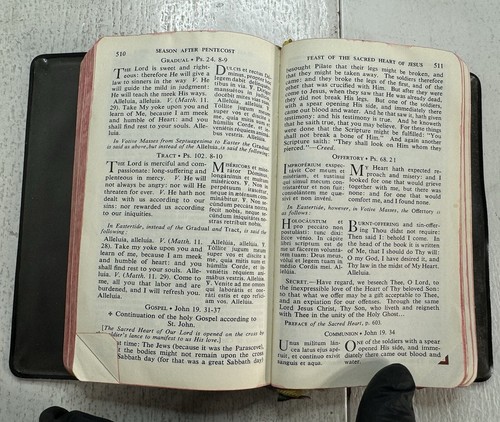 510
MASON AFTER PENTECOST
GRADUAL • Ps. 24. 8-9
THE Lord is sweet and right-
eous: therefore He will give a
law to sinners in the way. V. He
will guide the mild in judgment:
He will teach the meek His ways.
Alleluia, alleluia. V. (Matth. 11.
29). Take My yoke upon you and
learn of Me, because I am meek
and humble of Heart: and you
shall find rest to your souls. Alle-
luia.
DULCIS et rectus Dó-
minus, propter
legem dabit
In Votive Masses from Septuagesima to Easter the Gradual is
said as above, but instead of the Alleluia, is said the following:
TRACT • Ps. 102. 8-10
THE Lord is merciful and com-
passionate: long-suffering and
plenteous in mercy. V. He will
not always be angry: nor will He
threaten for ever. V. He hath not
dealt with us according to our
sins: nor rewarded us according
to our iniquities.
MISERICORS et
In Eastertide, instead of the Gradual and Tract, is said the
following:
Alleluia, alleluia. V. (Matth. 11.
28). Take My yoke upon you and
learn of me, because I am meek
and humble of heart: and you
shall find rest to your souls. Alle-
luia. V. (Matth. 11. 29). Come to
me, all you that labor and are
burdened, and I will refresh you.
Alleluia.
Allelúia, allelúia. V.
Tóllite jugum meum
super vos et díscite a
me, quia mitis sum et
húmilis Corde, et in-
veniétis réquiem ani-
mábus vestris. Allelúia.
V. Veníte ad me omnes
qui laborátis et one-
ráti estis et ego refíci-
am vos. Allelúia.
GOSPEL • John 19. 31-37
✠ Continuation of the holy Gospel according to
St. John.
[The Sacred Heart of Our Lord is opened on the cross by
soldier's lance to manifest to us His love.]
that time: The Jews (because it was the Parasceve),
the bodies might not remain upon the cross
Sabbath day (for that was a great Sabbath day)
FEAST OF THE SACRED HEART OF JESUS
511
besought Pilate that their legs might be broken, and
that they might be taken away. The soldiers therefore
came: and they broke the legs of the first, and of the
other that was crucified with Him. But after they were
come to Jesus, when they saw that He was already dead,
they did not break His legs. But one of the soldiers,
with a spear opening His side, and immediately there
came out blood and water. And he that saw it, hath given
testimony: and his testimony is true. And he knoweth
that he saith true, that you may believe. For these things
were done that the Scripture might be fulfilled: "You
shall not break a bone of Him." And again another
Scripture saith: "They shall look on Him whom they
pierced."—Creed.
OFFERTORY • Ps. 68. 21
IMPROPÉRIUM exspec-
távit Cor meum et
misériam, et sustínui
qui simul mecum con-
tristarétur et non fuit:
consolántem me quæ-
sívi et non invéni.
MY Heart hath expected re-
proach and misery: and I
looked for one that would grieve
together with me, but there was
none: and for one that would
comfort me, and I found none.
In Eastertide, however, in Votive Masses, the Offertory is
as follows:
HOLOCÁUSTUM et
pro peccáto non
postulásti: tunc dixi:
Ecce vénio. In cápite
libri scriptum est de
me ut fácerem volun-
tátem tuam: Deus meus,
vólui et legem tuam in
médio Cordis mei. Al-
lelúia.
BURNT-OFFERING and sin-offer-
ing Thou didst not require:
Then said I: behold I come. In
the head of the book it is written
of Me, that I should do Thy will:
O my God, I have desired it, and
Thy law in the midst of My Heart.
Alleluia.
SECRET.—Have regard, we beseech Thee, O Lord, to
the inexpressible love of the Heart of Thy beloved Son:
so that what we offer may be a gift acceptable to Thee,
and an expiation for our offences. Through the same
Lord Jesus Christ, Thy Son, who liveth and reigneth
with Thee in the unity of the Holy Ghost...
PREFACE of the Sacred Heart, p. 603.
COMMUNION • John 19. 34
UNUS mílitum lán-
cea latus ejus apé-
ruit, et contínuo exívit
sanguis et aqua.
ONE of the soldiers with a spear
opened His side, and imme-
diately there came out blood and
water.